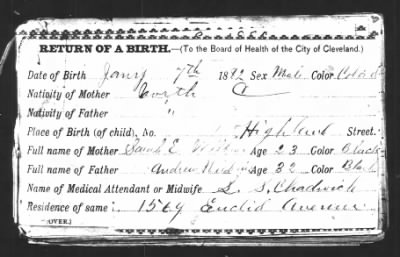 RETURN OF A BIRTH.—(To the Board of Health of the City of Cleveland.)
Date of Birth Jany 7th 1892 Sex Male Color Colo'd
Nativity of Mother
Nativity of Father "
Place of Birth (of child), No. Highland Street.
Full name of Mother Sarah E Age 23 Color Black
Full name of Father Andrew Age 32 Color Black
Name of Medical Attendant or Midwife S. S. Chadwick
Residence of same 1569 Euclid Avenue
(OVER.)